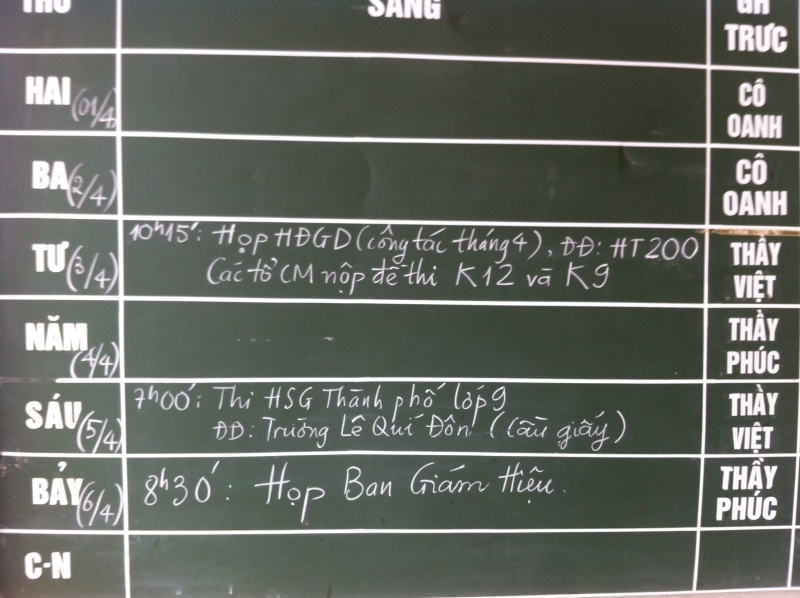 THỨ SÁNG GH
TRỰC
HAI (01/4) CÔ
OANH
BA (2/4) CÔ
OANH
TƯ (3/4) 10h15': Họp HĐGD (công tác tháng 4), ĐĐ: HT200 THẦY
Các tổ CM nộp đề thi K12 và K9 VIỆT
NĂM (4/4) THẦY
PHÚC
SÁU (5/4) 7h00': Thi HSG Thành phố lớp 9 THẦY
ĐĐ: Trường Lê Quí Đôn (Cầu giấy) VIỆT
BẢY (6/4) 8h30': Họp Ban Giám Hiệu. THẦY
PHÚC
C-N